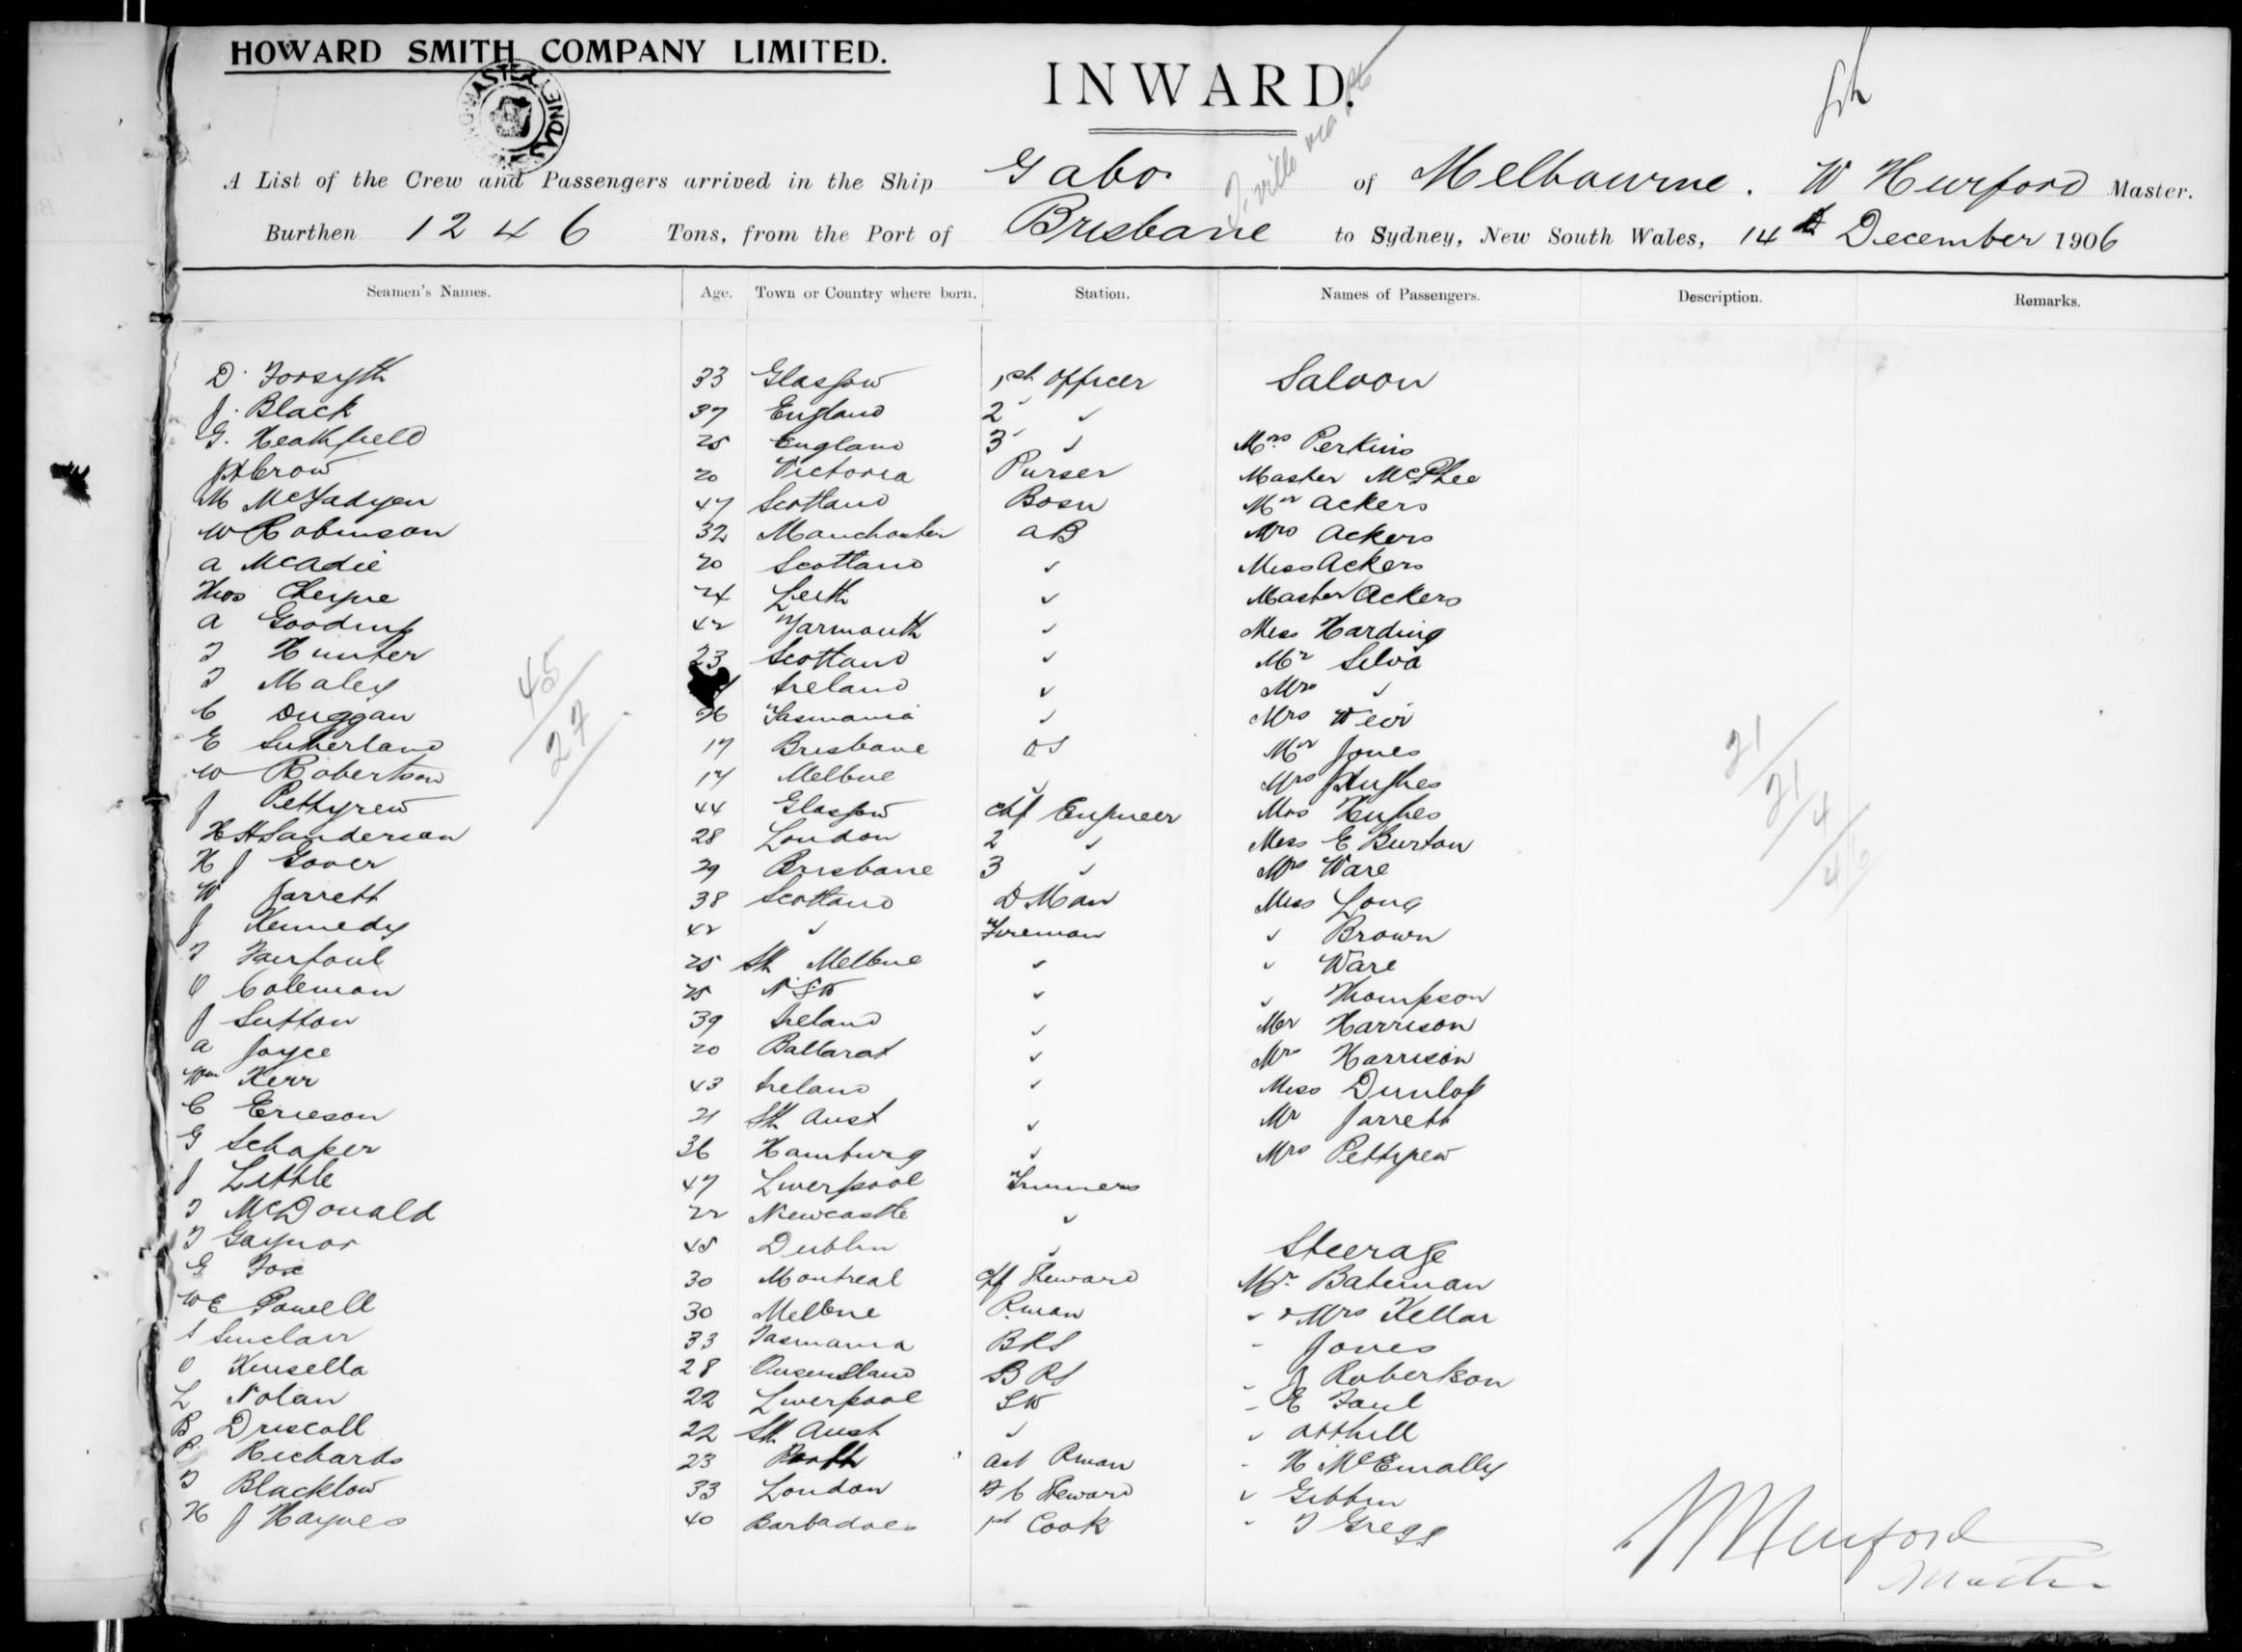 HOWARD SMITH COMPANY LIMITED.
INWARD.
A List of the Crew and Passengers arrived in the Ship Gabo. of Melbourne. W Hurford Master.
Burthen 1246 Tons, from the Port of Brisbane to Sydney, New South Wales, 14th December 1906
Seamen's Names. Age. Town or Country where born. Station. Names of Passengers. Description. Remarks.
D. Forsyth 33 Glasgow 1st Officer Saloon
J. Black 37 England 2 ✓
G. Heathfield 25 England 3 ✓ Mrs Perkins
JH Crow 20 Victoria Purser Master McPhee
M McFadyen 47 Scotland Bosn Mr Ackers
W Robinson 32 Manchester AB Mrs Ackers
A McAdie 20 Scotland ✓ Miss Ackers
Thos Cheyne 24 Leith ✓ Master Ackers
A Gooding 42 Yarmouth ✓ Miss Harding
T Hunter 23 Scotland ✓ Mr Silva
T Maley Ireland ✓ Mrs ✓
C Duggan 26 Tasmania ✓ Mrs Weir
E Sutherland 17 Brisbane OS Mr Jones
W Robertson 17 Melbne ✓ Mrs Hughes
J Pettyrew 44 Glasgow Chf Engineer Mrs Hughes
HH Sanderson 28 London 2 ✓ Miss E Burton
H J Gover 29 Brisbane 3 ✓ Mrs Ware
W Jarrett 38 Scotland D Man Miss Long
J Kennedy 42 ✓ Fireman ✓ Brown
T Fairfoul 25 Sth Melbne ✓ ✓ Ware
O Coleman 25 NSW ✓ ✓ Thompson
J Sutton 39 Ireland ✓ Mr Harrison
A Joyce 20 Ballarat ✓ Mrs Harrison
Wm Kerr 43 Ireland ✓ Miss Dunlop
C Ericson 21 Sth Aust ✓ Mr Jarrett
G Schaper 36 Hamburg ✓ Mrs Pettyrew
J Little 47 Liverpool Trimmers
T McDonald 22 Newcastle ✓
T Gaynor 45 Dublin ✓ Steerage
G Fox 30 Montreal Chf Steward Mr. Bateman
WE Powell 30 Melbne Rman ✓ & Mrs Kellar
S Sinclair 33 Tasmania BRS - Jones
O Kinsella 28 Queensland BRS - J Robertson
L Nolan 22 Liverpool SW - E Faul
B Driscoll 22 Sth Aust ✓ ✓ Atthill
P. Richards 23 Perth Ast Rman - H McEnally
T Blacklow 33 London F C Steward ✓ Gibbin
H J Haynes 40 Barbadoes 1st Cook - T Gregg
45
27
21
21
4
46
W Hurford
Master